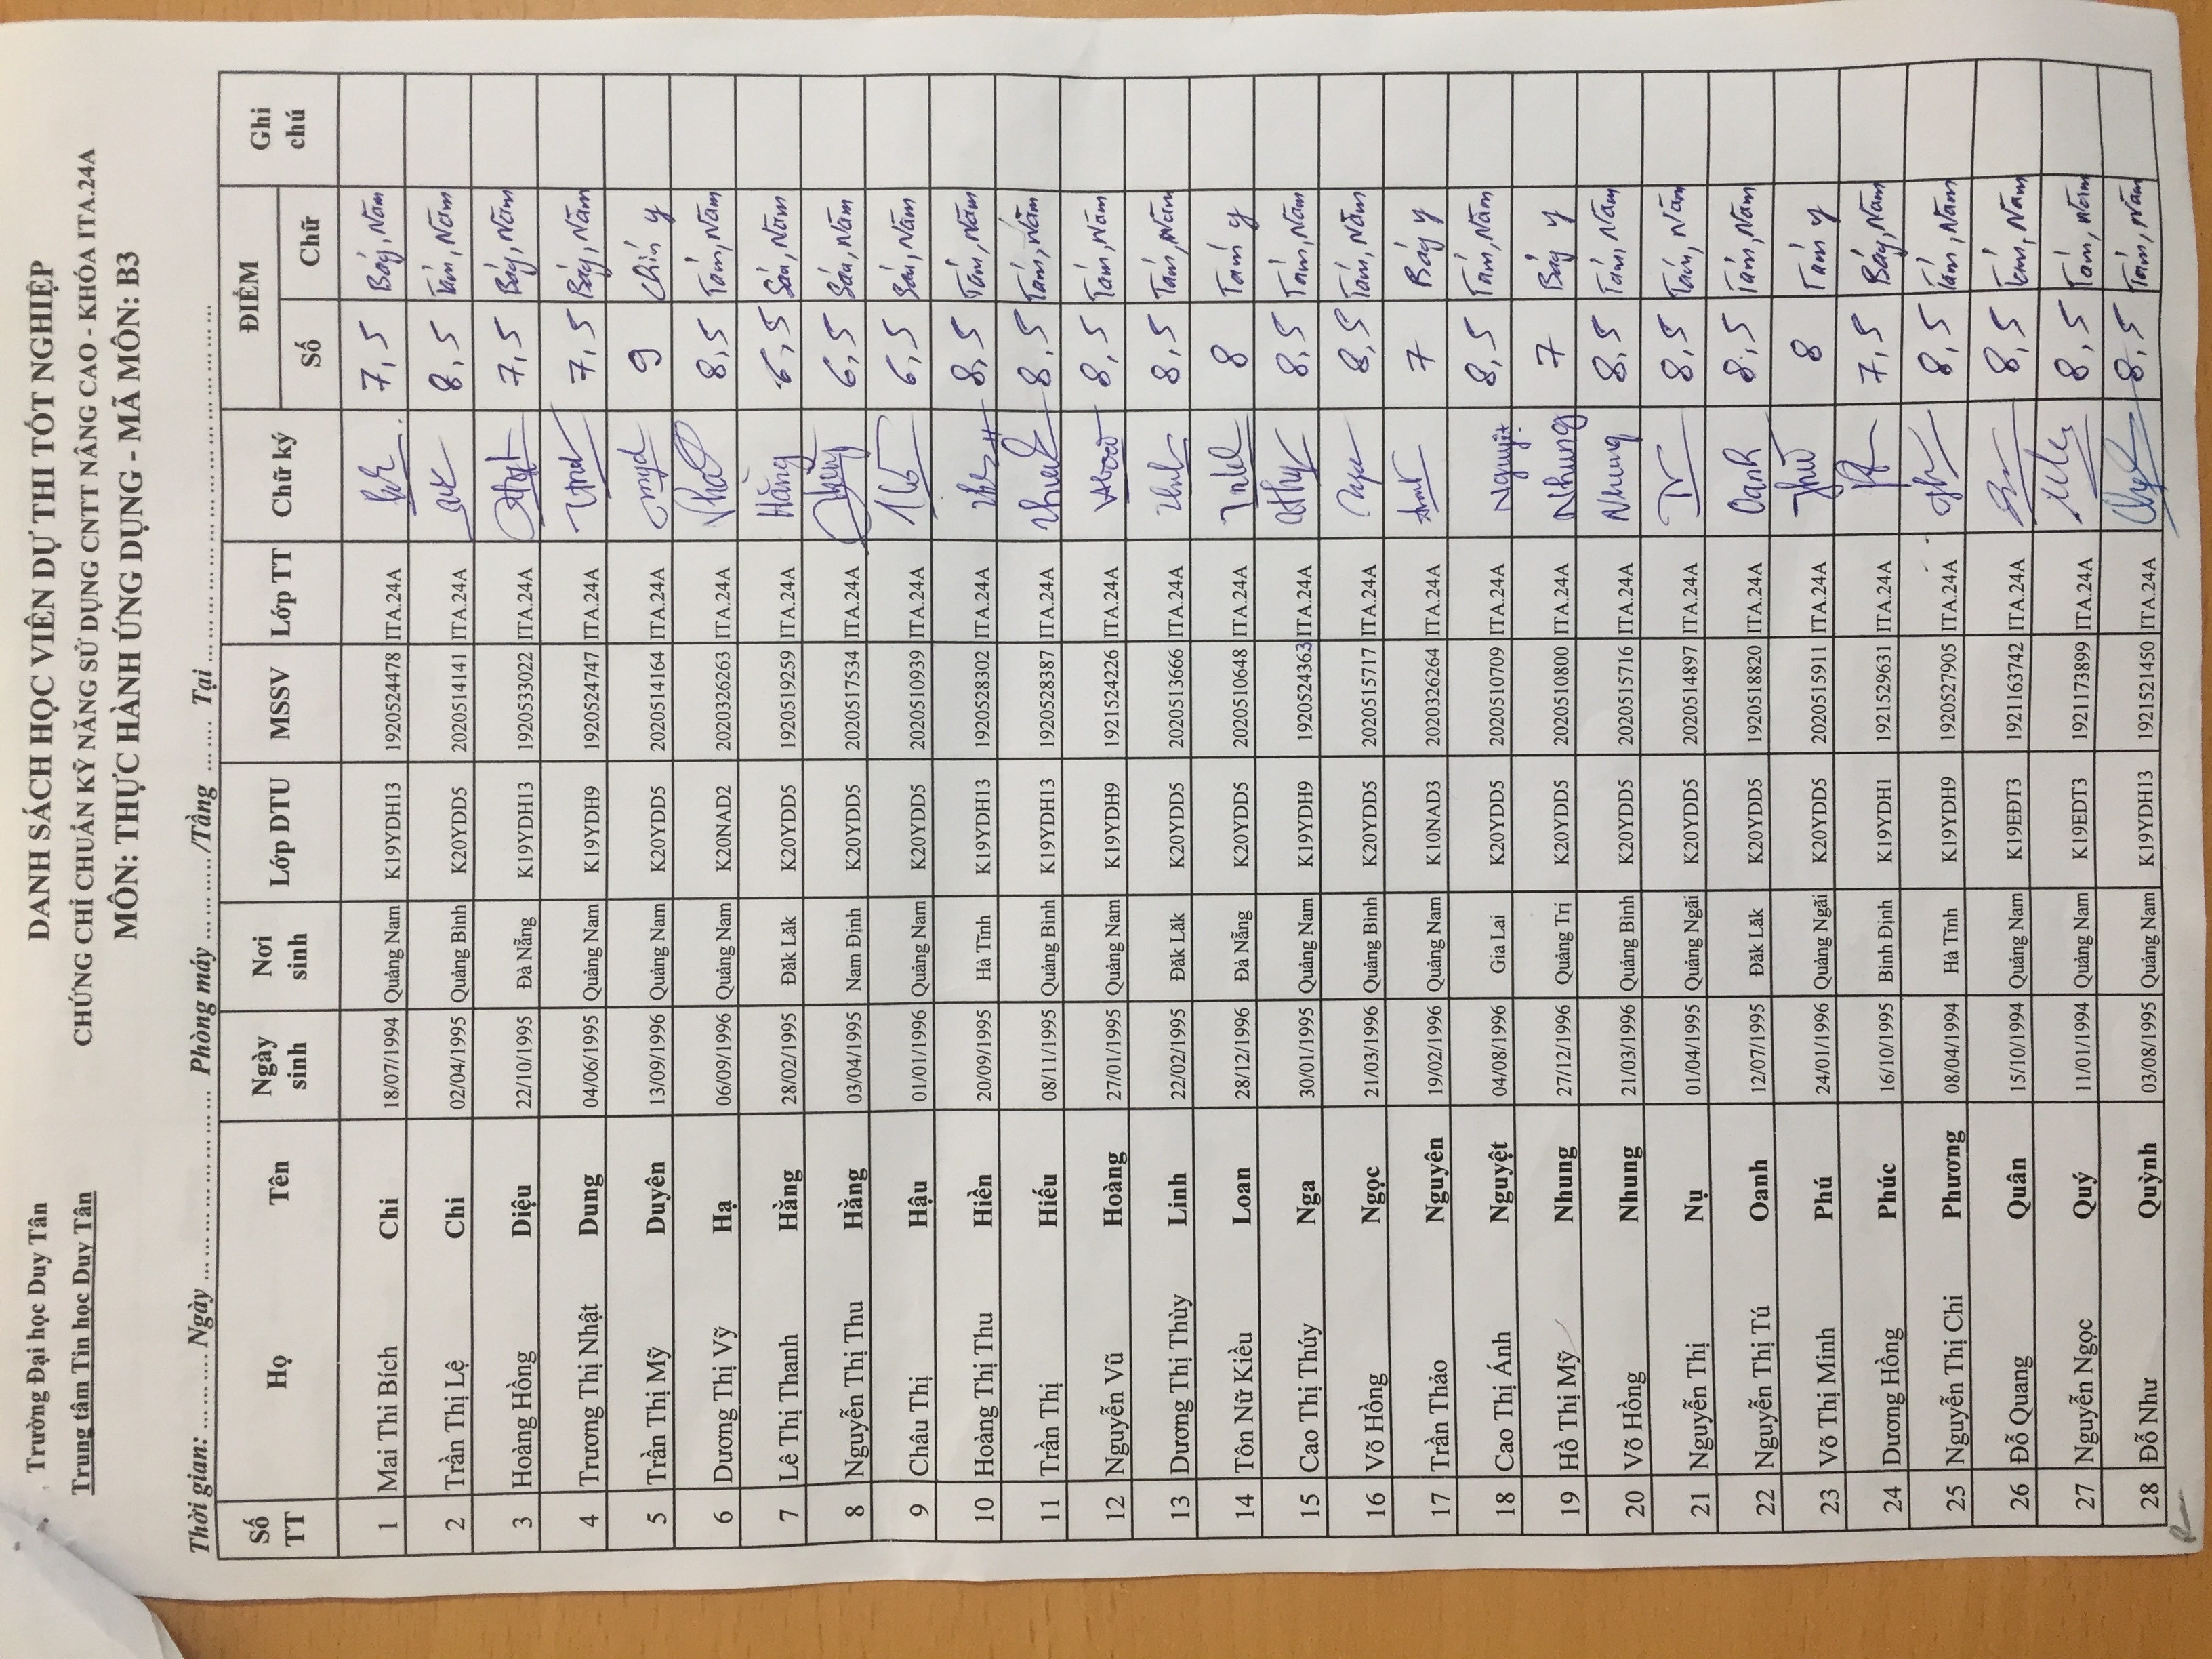 Trường Đại học Duy Tân
Trung tâm Tin học Duy Tân
DANH SÁCH HỌC VIÊN DỰ THI TỐT NGHIỆP
CHỨNG CHỈ CHUẨN KỸ NĂNG SỬ DỤNG CNTT NÂNG CAO - KHÓA ITA.24A
MÔN: THỰC HÀNH ỨNG DỤNG - MÃ MÔN: B3
Thời gian: ......... Ngày ........................ Phòng máy ............ /Tầng ...... Tại ..............................
Số TT Họ Tên Ngày sinh Nơi sinh Lớp DTU MSSV Lớp TT Chữ ký ĐIỂM Ghi chú
Số Chữ
1 Mai Thi Bích Chi 18/07/1994 Quảng Nam K19YDH13 1920524478 ITA.24A 7,5 Bảy, Năm
2 Trần Thị Lệ Chi 02/04/1995 Quảng Bình K20YDD5 2020514141 ITA.24A 8,5 Tám, Năm
3 Hoàng Hồng Diệu 22/10/1995 Đà Nẵng K19YDH13 1920533022 ITA.24A 7,5 Bảy, Năm
4 Trương Thị Nhật Dung 04/06/1995 Quảng Nam K19YDH9 1920524747 ITA.24A 7,5 Bảy, Năm
5 Trần Thị Mỹ Duyên 13/09/1996 Quảng Nam K20YDD5 2020514164 ITA.24A 9 Chín y
6 Dương Thị Vỹ Hạ 06/09/1996 Quảng Nam K20NAD2 2020326263 ITA.24A 8,5 Tám, Năm
7 Lê Thị Thanh Hằng 28/02/1995 Đăk Lăk K20YDD5 1920519259 ITA.24A Hằng 6,5 Sáu, Năm
8 Nguyễn Thị Thu Hằng 03/04/1995 Nam Định K20YDD5 2020517534 ITA.24A 6,5 Sáu, Năm
9 Châu Thị Hậu 01/01/1996 Quảng Nam K20YDD5 2020510939 ITA.24A 6,5 Sáu, Năm
10 Hoàng Thị Thu Hiền 20/09/1995 Hà Tĩnh K19YDH13 1920528302 ITA.24A 8,5 Tám, Năm
11 Trần Thị Hiếu 08/11/1995 Quảng Bình K19YDH13 1920528387 ITA.24A 8,5 Tám, Năm
12 Nguyễn Vũ Hoàng 27/01/1995 Quảng Nam K19YDH9 1921524226 ITA.24A 8,5 Tám, Năm
13 Dương Thị Thùy Linh 22/02/1995 Đăk Lăk K20YDD5 2020513666 ITA.24A 8,5 Tám, Năm
14 Tôn Nữ Kiều Loan 28/12/1996 Đà Nẵng K20YDD5 2020510648 ITA.24A 8 Tám y
15 Cao Thị Thúy Nga 30/01/1995 Quảng Nam K19YDH9 1920524363 ITA.24A 8,5 Tám, Năm
16 Võ Hồng Ngọc 21/03/1996 Quảng Bình K20YDD5 2020515717 ITA.24A 8,5 Tám, Năm
17 Trần Thảo Nguyên 19/02/1996 Quảng Nam K10NAD3 2020326264 ITA.24A 7 Bảy y
18 Cao Thị Ánh Nguyệt 04/08/1996 Gia Lai K20YDD5 2020510709 ITA.24A Nguyệt 8,5 Tám, Năm
19 Hồ Thị Mỹ Nhung 27/12/1996 Quảng Trị K20YDD5 2020510800 ITA.24A Nhung 7 Bảy y
20 Võ Hồng Nhung 21/03/1996 Quảng Bình K20YDD5 2020515716 ITA.24A Nhung 8,5 Tám, Năm
21 Nguyễn Thị Nụ 01/04/1995 Quảng Ngãi K20YDD5 2020514897 ITA.24A 8,5 Tám, Năm
22 Nguyễn Thị Tú Oanh 12/07/1995 Đăk Lăk K20YDD5 1920518820 ITA.24A Oanh 8,5 Tám, Năm
23 Võ Thị Minh Phú 24/01/1996 Quảng Ngãi K20YDD5 2020515911 ITA.24A 8 Tám y
24 Dương Hồng Phúc 16/10/1995 Bình Định K19YDH1 1921529631 ITA.24A 7,5 Bảy, Năm
25 Nguyễn Thị Chi Phương 08/04/1994 Hà Tĩnh K19YDH9 1920527905 ITA.24A 8,5 Tám, Năm
26 Đỗ Quang Quân 15/10/1994 Quảng Nam K19EĐT3 1921163742 ITA.24A 8,5 Tám, Năm
27 Nguyễn Ngọc Quý 11/01/1994 Quảng Nam K19EDT3 1921173899 ITA.24A 8,5 Tám, Năm
28 Đỗ Như Quỳnh 03/08/1995 Quảng Nam K19YDH13 1921521450 ITA.24A 8,5 Tám, Năm